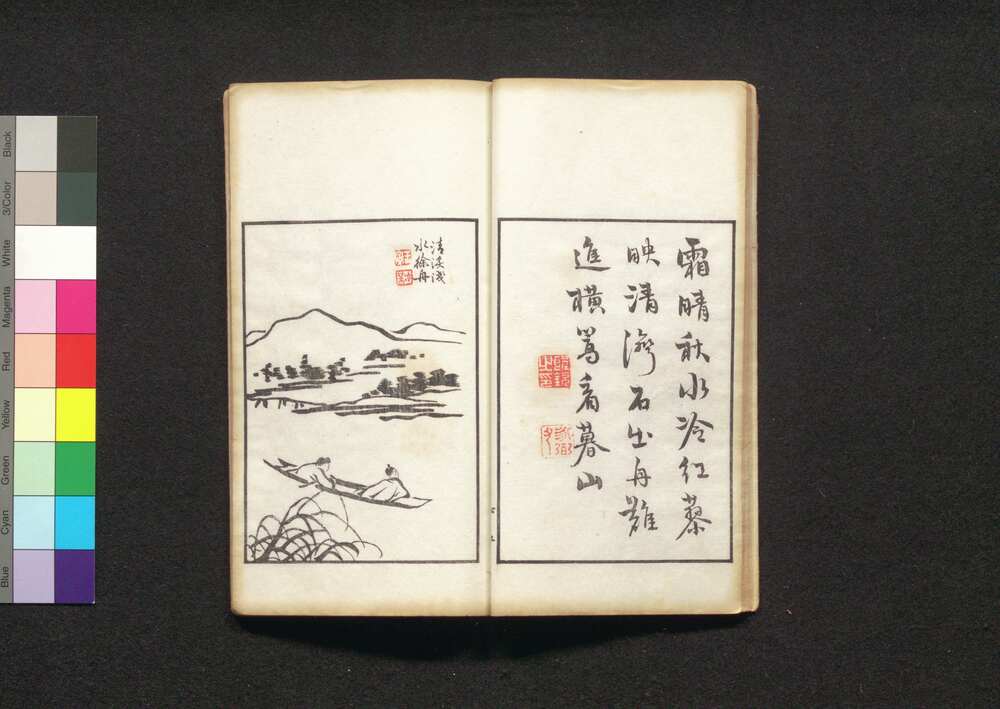 霜晴秋水冷紅蓼
映清漪石出舟難
進橫篙看暮山
清溪淺
水徐舟
Black
3/Color
White
Magenta
Red
Yellow
Green
Cyan
Blue